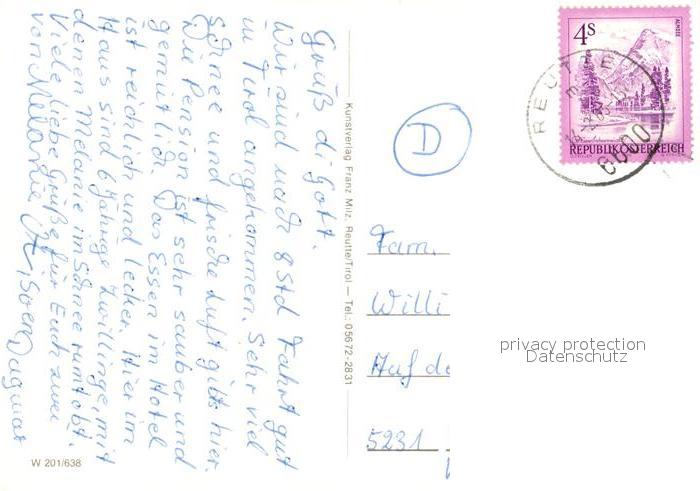 Grüß di Gott.
Wir sind nach 8 Std Fahrt gut
in Tirol angekommen. Sehr viel
Schnee und frische Luft gibts hier.
Die Pension ist sehr sauber und
gemütlich. Das Essen im Hotel
ist reichlich und lecker. Hier im
Haus sind 6 jährige Zwillinge, mit
denen Melanie im Schnee rumtobt.
Viele liebe Grüße für Euch zwei
von Melanie
Dagmar
W 201/638
Kunstverlag Franz Milz, Reutte/Tirol – Tel.: 05672-2831
D
4S
ALMSEE
REPUBLIK ÖSTERREICH
REUTTE
6600
Fam.
Willi
Auf de
5231
privacy protection
Datenschutz